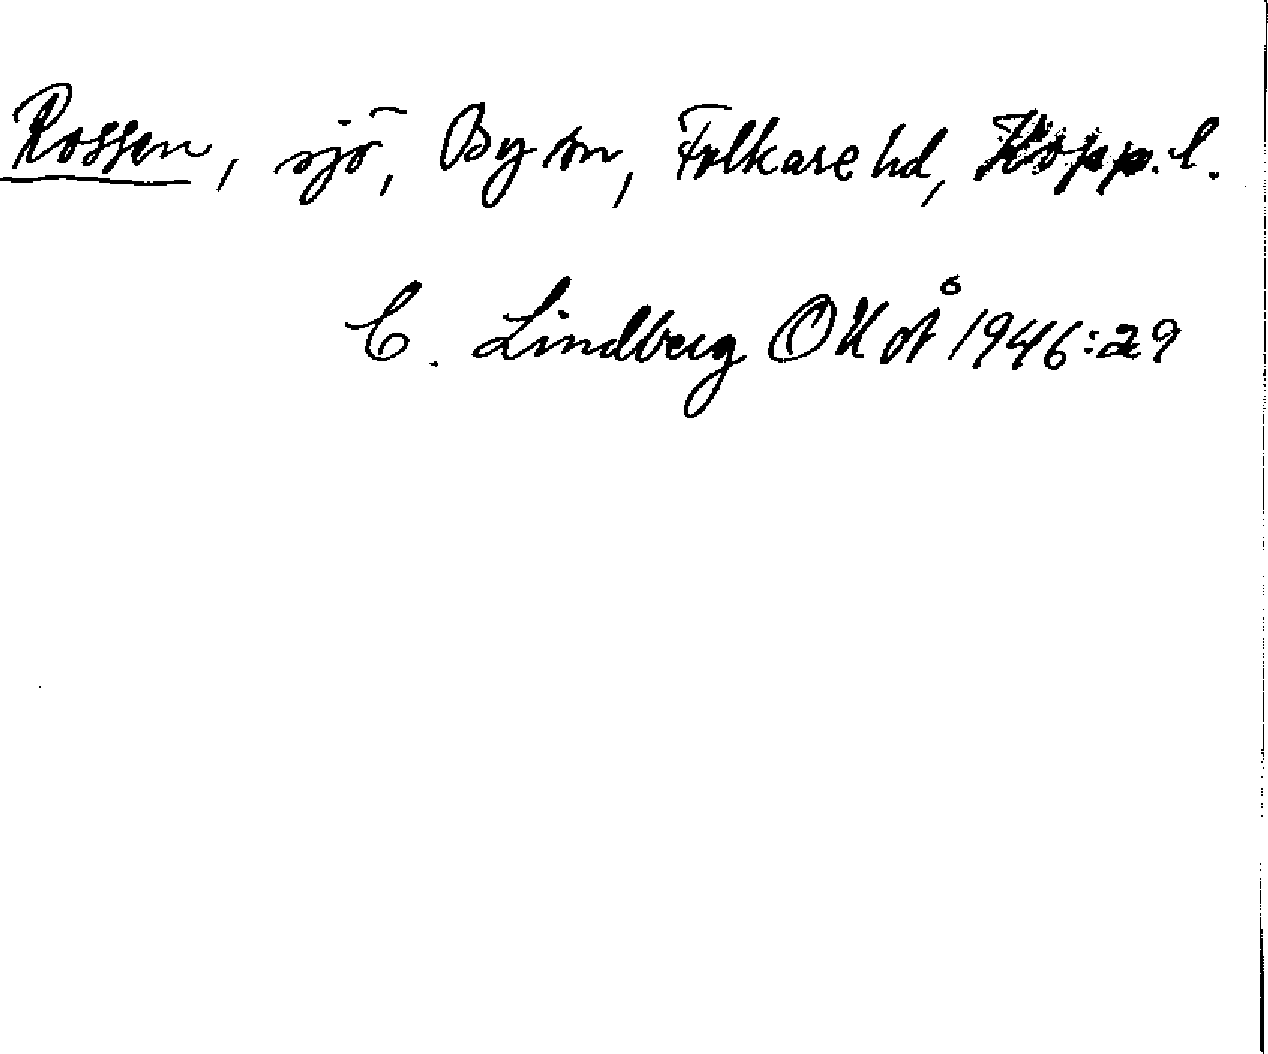 Rossen, sjö, By sn, Folkare hd, Kopp. l.
C. Lindberg OUÅ 1946:29